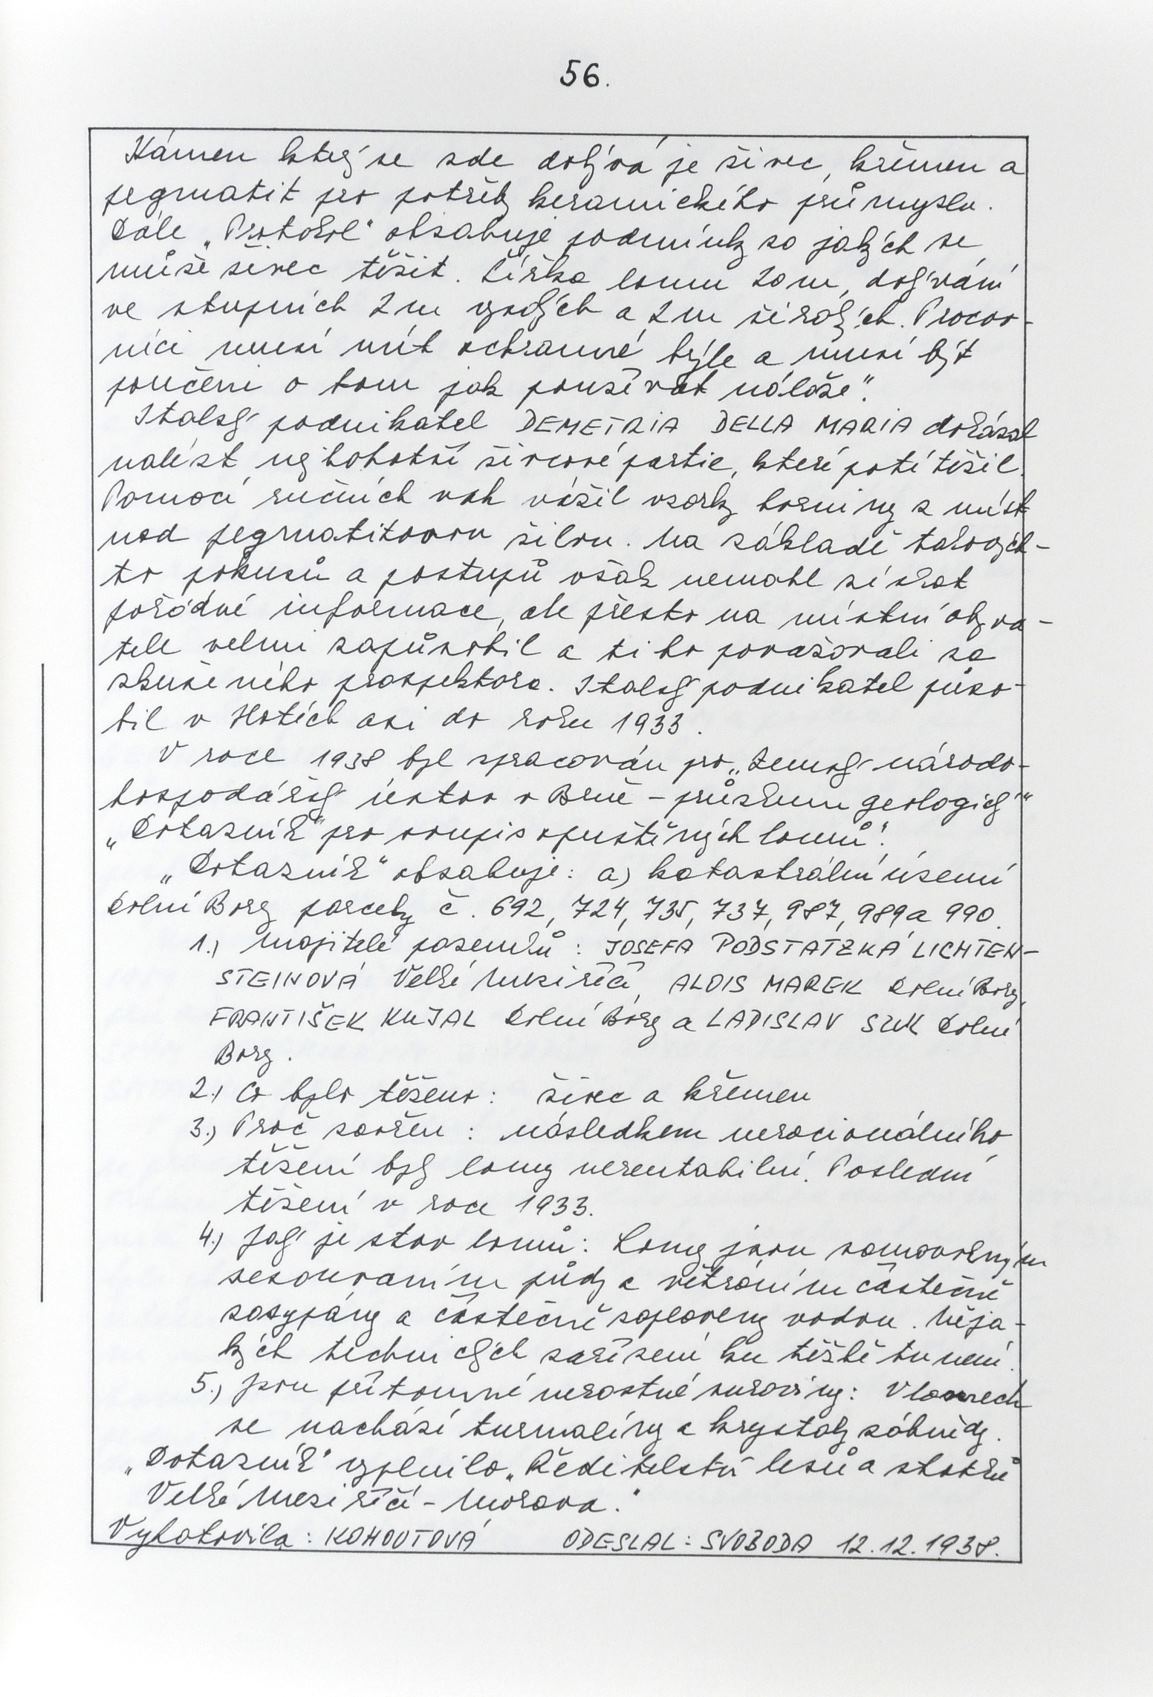 56.
Kámen který se zde dobývá je živec, křemen a
pegmatit pro potřeby keramického průmyslu.
Dále „Protokol" obsahuje podmínky za jakých se
může živec těžit. Šířka lomu 20 m, dobývání
ve stupních 2 m vysokých a 2 m širokých. Pracov-
níci musí mít ochranné brýle a musí být
poučeni o tom jak používat nálože".
Italský podnikatel DEMETRIA DELLA MARIA dokázal
nalézt nejbohatší živcové partie, které poté těžil.
Pomocí ručních vah vážil vzorky horniny z míst
nad pegmatitovou žilou. Na základě takových-
to pokusů a postupů však nemohl získat
pořádné informace, ale přesto na místní obyva-
tele velmi zapůsobil a ti ho považovali za
zkušeného prospektora. Italský podnikatel půso-
bil v Hatích asi do roku 1933.
V roce 1938 byl zpracován pro „Zemský národo-
hospodářský ústav v Brně - průzkum geologický"
„Dotazník" pro soupis opuštěných lomů".
„Dotazník" obsahuje: a) katastrální území
Dolní Bory parcely č. 692, 724, 735, 737, 987, 989 a 990.
1.) Majitelé pozemků: JOSEFA PODSTATZKÁ LICHTEN-
STEINOVÁ Velké Meziříčí, ALOIS MAREK Dolní Bory,
FRANTIŠEK KUJAL Dolní Bory a LADISLAV SUK Dolní
Bory.
2.) Co bylo těženo: živec a křemen
3.) Proč zavřen: následkem neracionálního
těžení byly lomy nerentabilní. Poslední
těžení v roce 1933.
4.) Jaký je stav lomů: Lomy jsou samovolným
sesouváním půdy a větráním částečně
zasypány a částečně zaplaveny vodou. Něja-
kých technických zařízení ku těžbě tu není.
5.) Jsou přítomné nerostné suroviny: V lomech
se nachází turmalíny a krystaly záhnědy.
„Dotazník" vyplnilo „Ředitelství lesů a statků
Velké Meziříčí - Morava."
Vyhotovila: KOHOUTOVÁ ODESLAL: SVOBODA 12.12.1938.